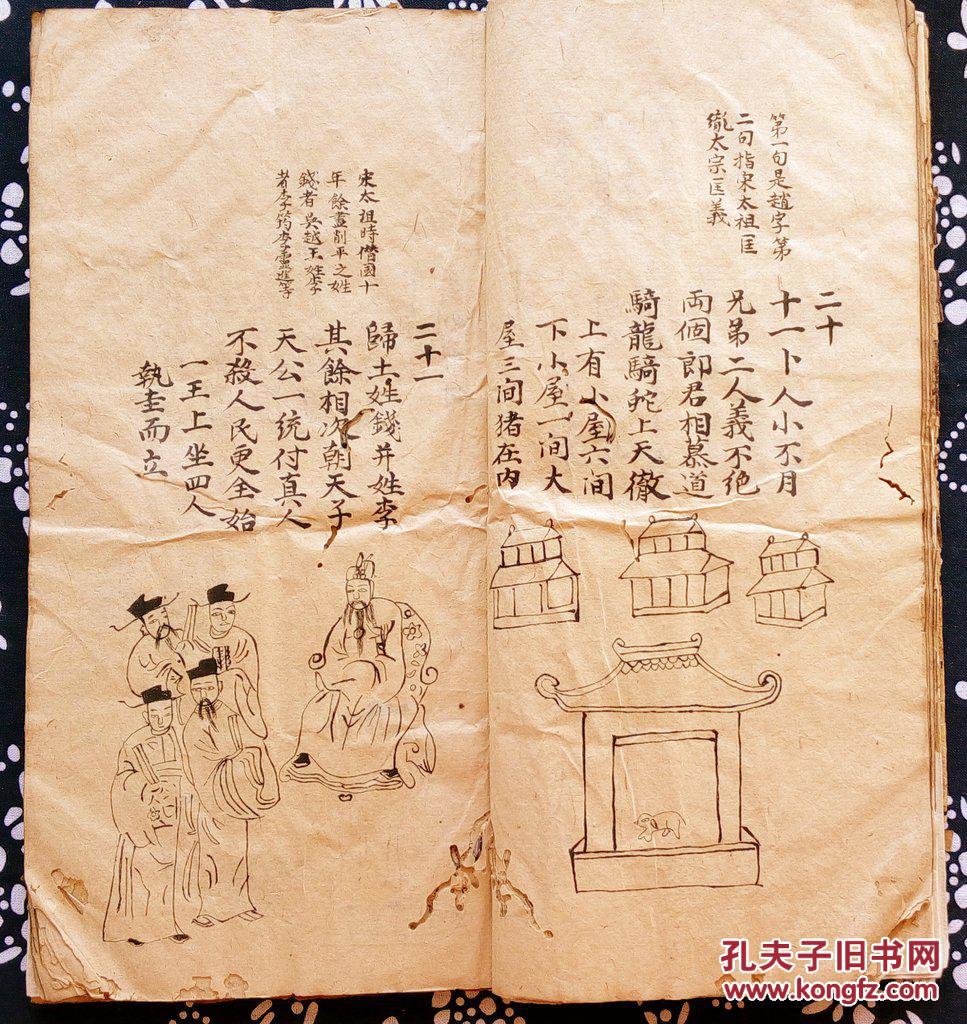 第一句是趙字第
二句指宋太祖匡
胤太宗匡義
二十
十一卜人小不月
兄弟二人義不绝
両個郎君相慕道
騎龍騎蛇上天徹
上有小屋六间
下小屋一间大
屋三间猪在内
宋太祖時僭國十
年餘盡削平之姓
錢者吳越王姓李
者李筠李重進等
二十一
歸土姓錢并姓李
其餘相次朝天子
天公一统付真人
不殺人民更全始
一王上坐四人
執圭而立
孔夫子旧书网
www.kongfz.com